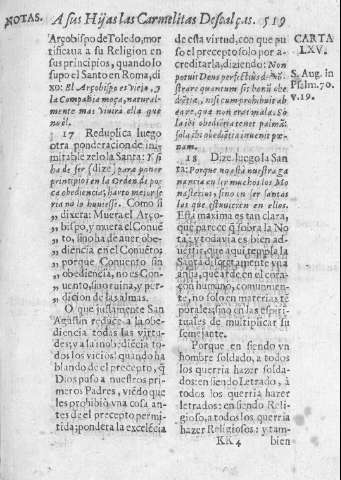 NOTAS. A sus Hijas las Carmelitas Descalças. 519
Arçobispo de Toledo, mor
tificaua a su Religion en
sus principios, quando lo
supo el Santo en Roma, di
xo: El Arçobispo es viejo, y
la Compañia moça, natural-
mente mas viuira ella que
no él.
17 Reduplica luego
otra ponderacion de ini
mitable zelo la Santa: Y si
ha de ser (dize) para poner
principio en la Orden de po
ca obediencia, harto mejor se
ria no lo huuiesse. Como si
„ dixera: Muera el Arço-
„ bispo, y muera el Conuẽ
„ to, sino ha de auer obe-
„ diencia en el Conuẽto;
„ porque Conuento sin
„ obediencia, no es Con-
„ uento, sino ruina, y per-
„ dicion de las almas.
O que justamente San
Agustin reduce a la obe
diencia todas las virtu-
des; y a la inobediẽcia to
dos los vicios! quando ha
blando de el precepto, q̃
Dios puso a nuestros pri
meros Padres, viẽdo que
les prohibiò vna cosa an-
tes de el precepto permi
tida; pondera la excelẽcia
de esta virtud, con que pu
so el precepto solo por a-
creditarla, diziendo: Non
potuit Deus perfectius demõ
strare quantum sit bonũ obe
diẽtia, nisi cum prohibuit ab
ea re, quæ non erat mala. So
la ibi obediẽtia tenet palmã,
sola ibi obedẽtia inuenit pœ-
nam.
18 Dize luego la San
ta: Porque no està nuestra ga
nancia en ser muchos los Mo
nasterios, sino en ser santas
las que estuuieren en ellos.
Esta maxima es tan clara,
que parece q̃ sobra la No
ta; y todavia es bien ad-
uertir, que aqui templa la
Santa discretamente vna
ansia, que arde en el cora
çon humano, comunmen-
te, no solo en materias tẽ
porales, sino en las espiri-
tuales de multiplicar su
semejante.
Porque en siendo vn
hombre soldado, a todos
los querria hazer solda-
dos: en siendo Letrado, à
todos los querria hazer
letrados: en siendo Reli-
gioso, a todos los querria
hazer Religiosos: y tam-
KK 4 bien
CARTA
LXV.
S. Aug. in
Psalm. 70.
v. 19.